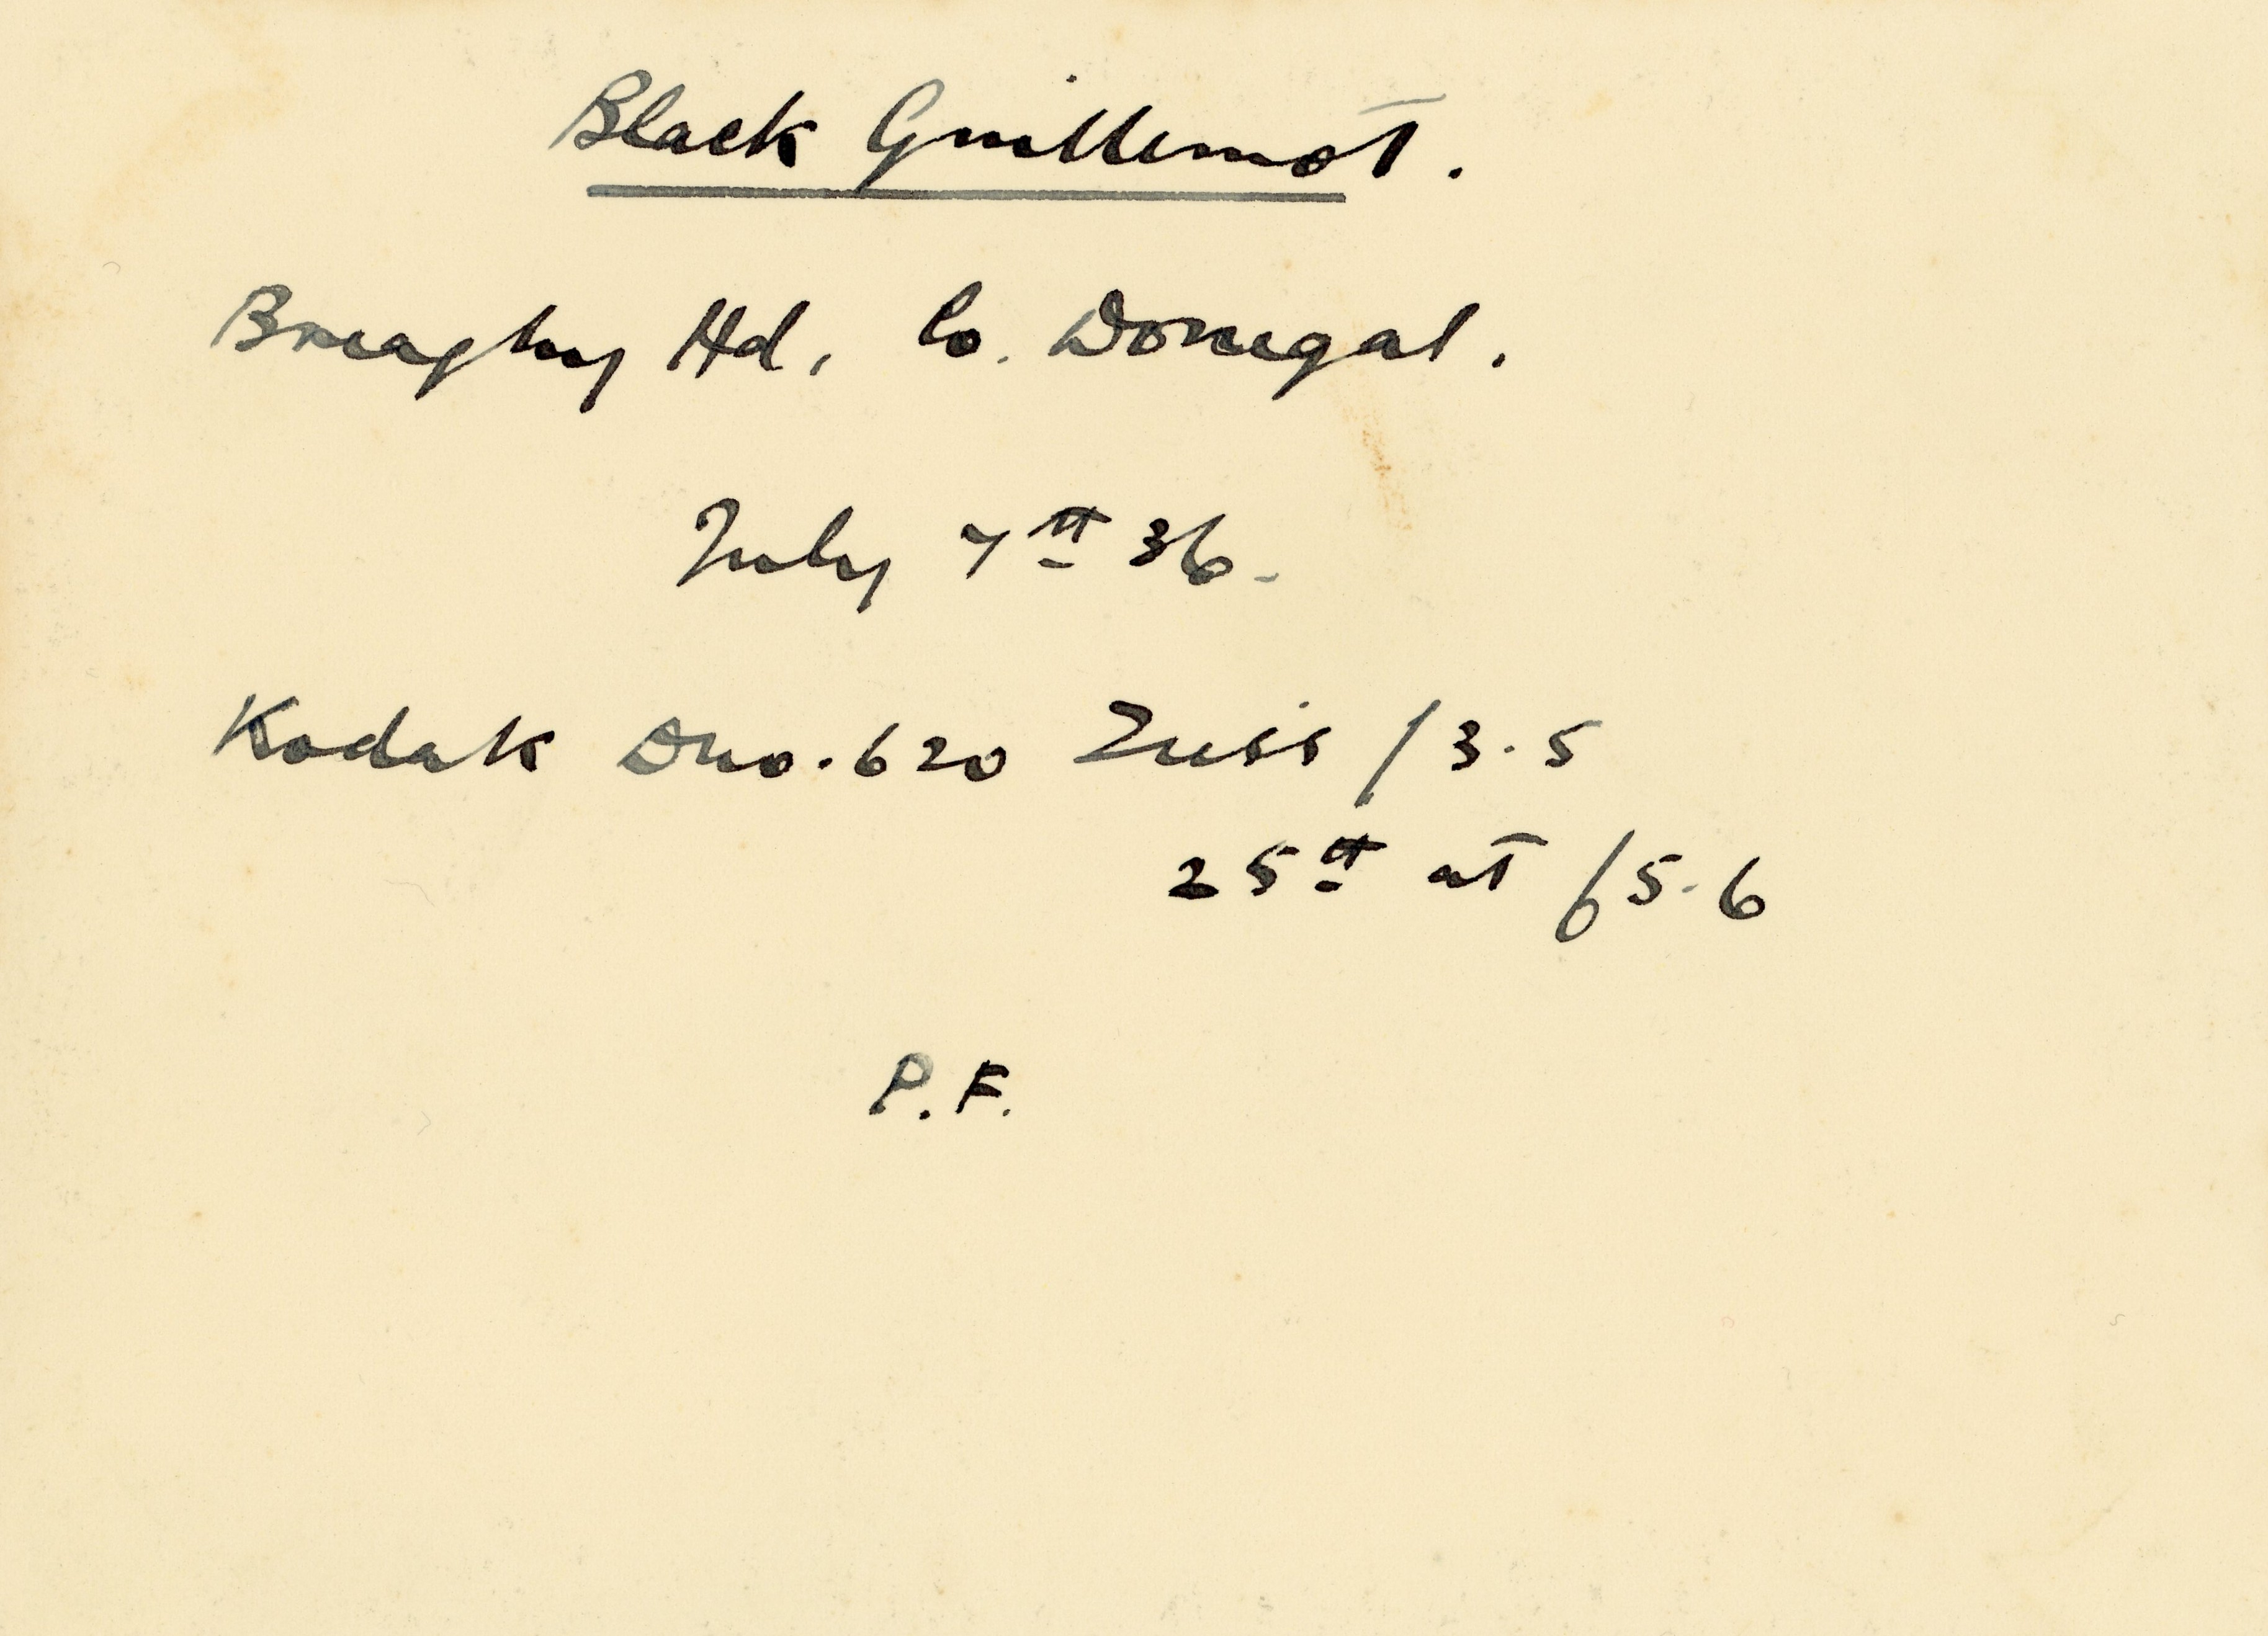 Black Guillemot.
Breaghy Hd, Co. Donegal.
July 7th 36.
Kodak Duo.620 Zeiss f3.5
25th at f5.6
P.F.